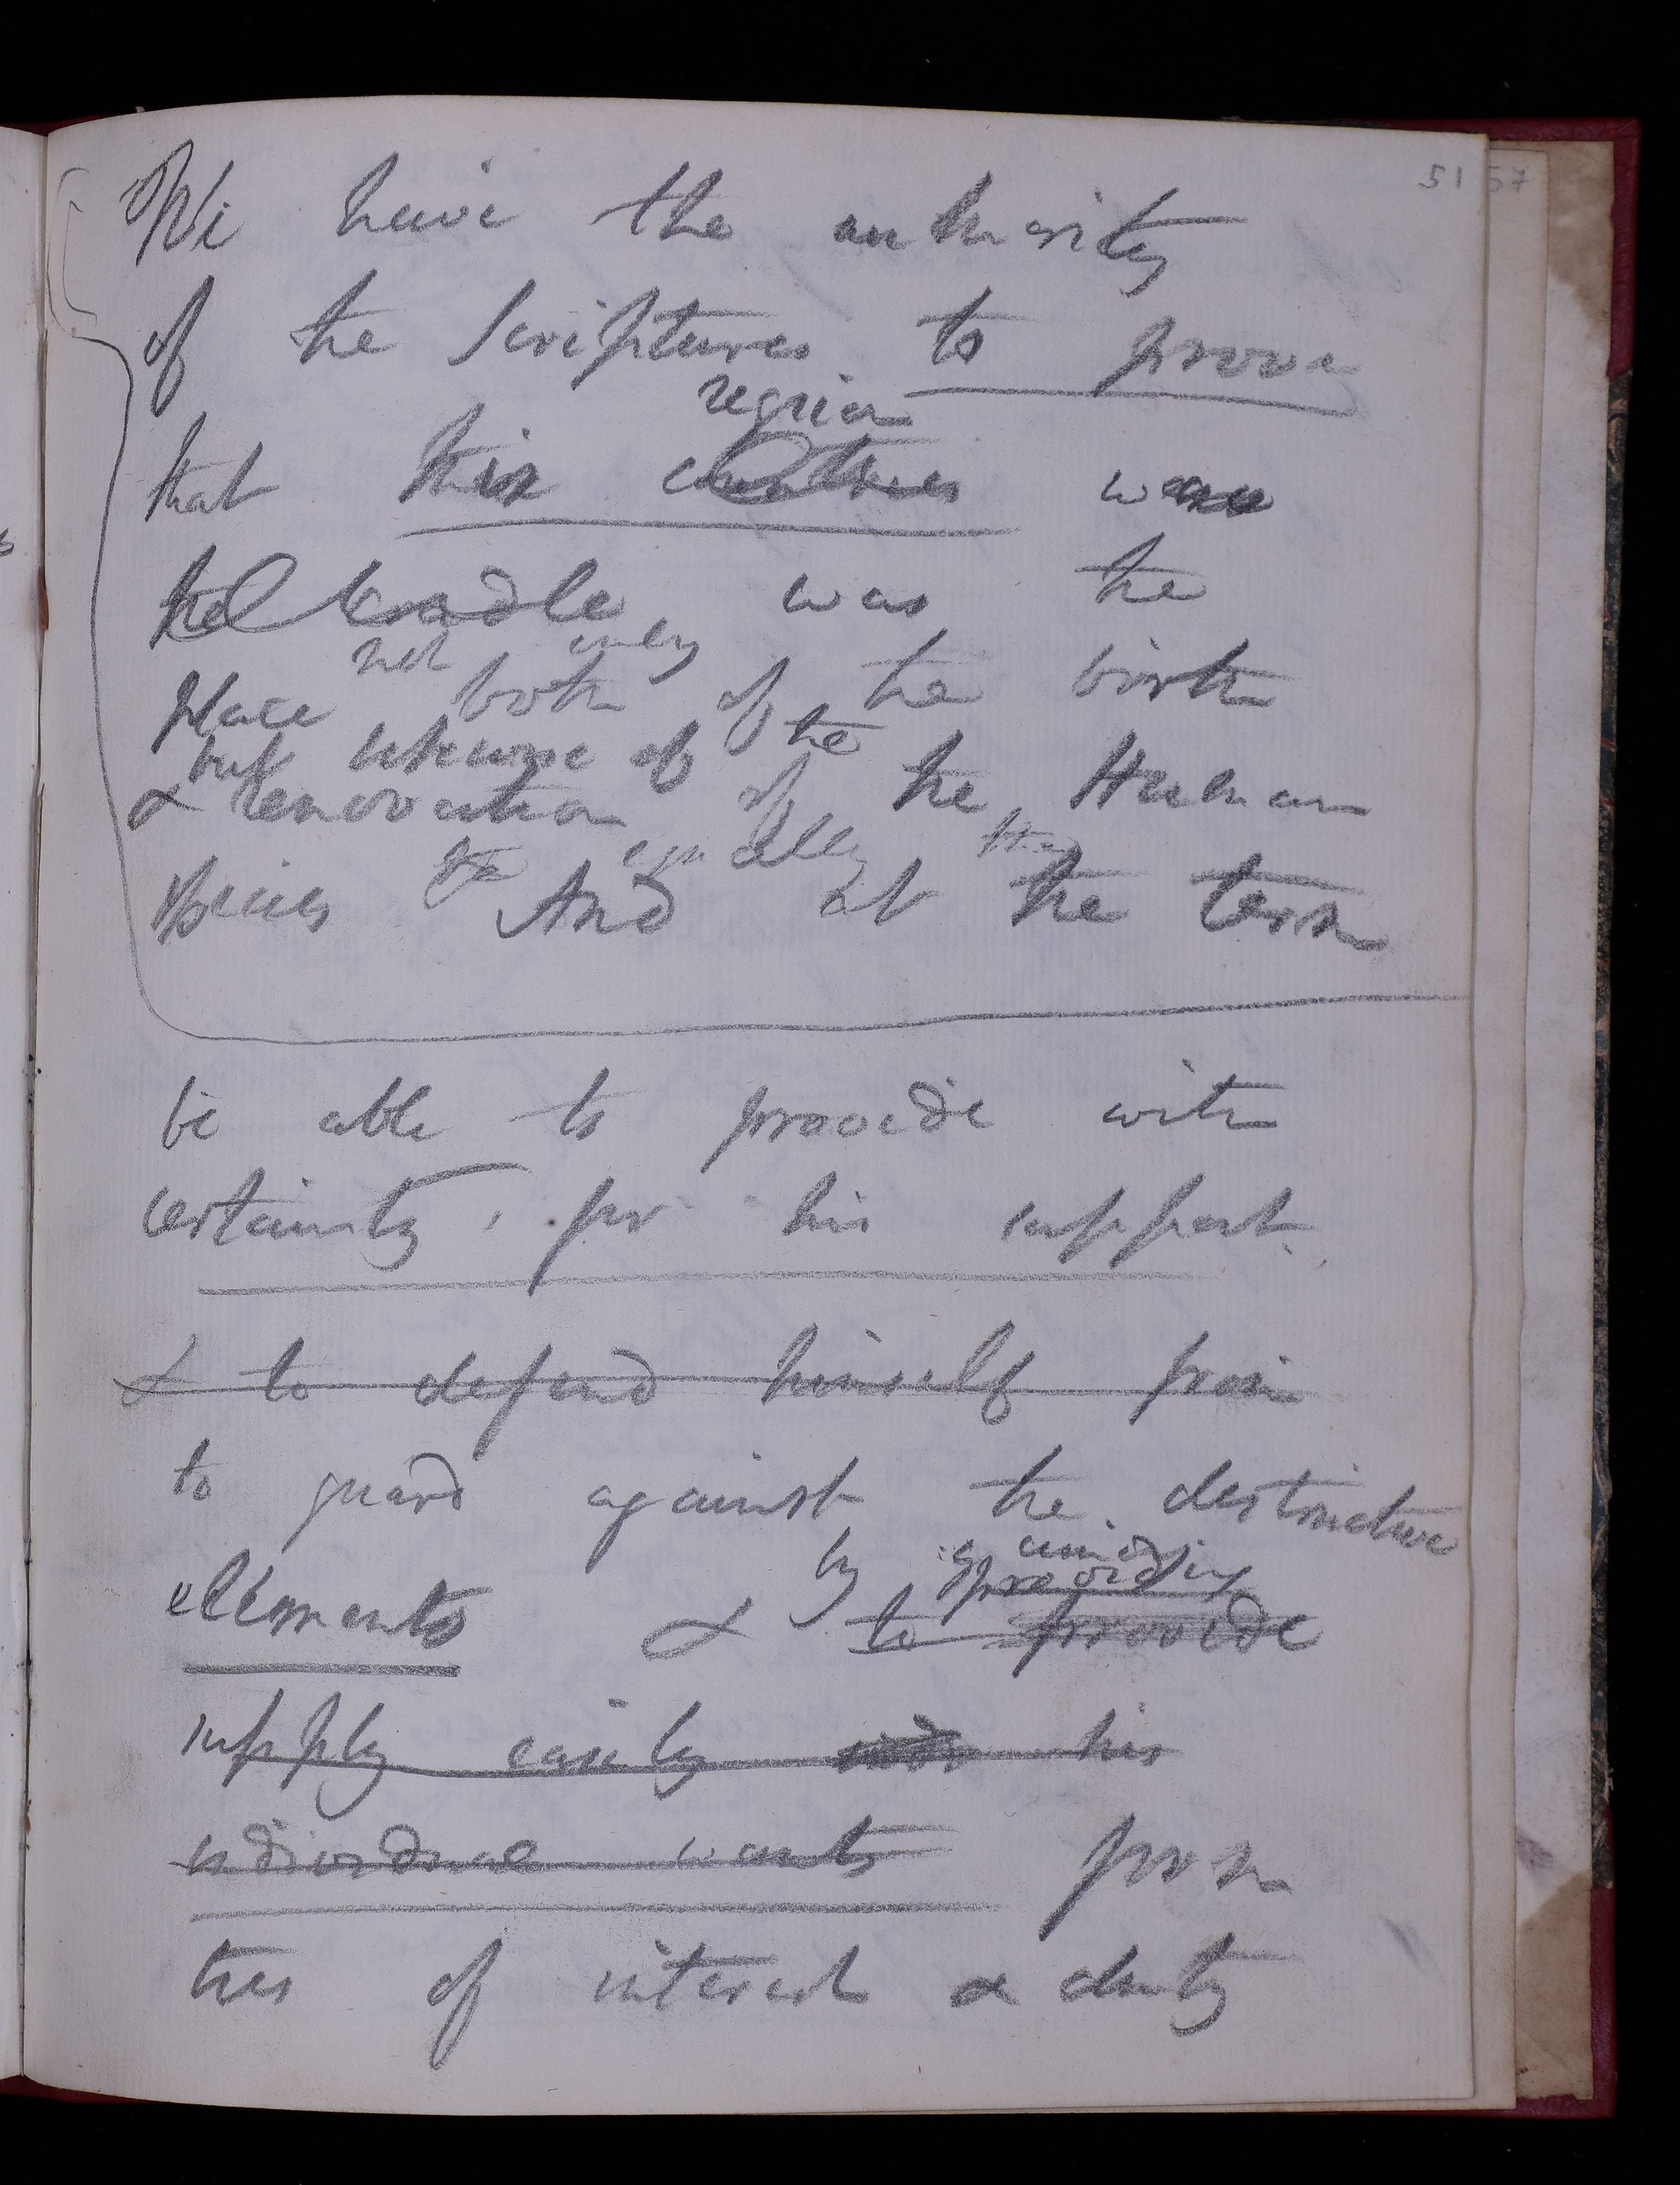 51 57
We have the authority
of the Scriptures to prove
region
that this countries was
the Cradle was the
not only
place both of the birth
but likewise of the
& renovation of the Human
equally
species And at the term
be able to provide with
certainty, for his support,
& to defend himself from
to guard against the destructive
elements & to provide
by providing
supply easily his
individual wants form
ties of interest & duty